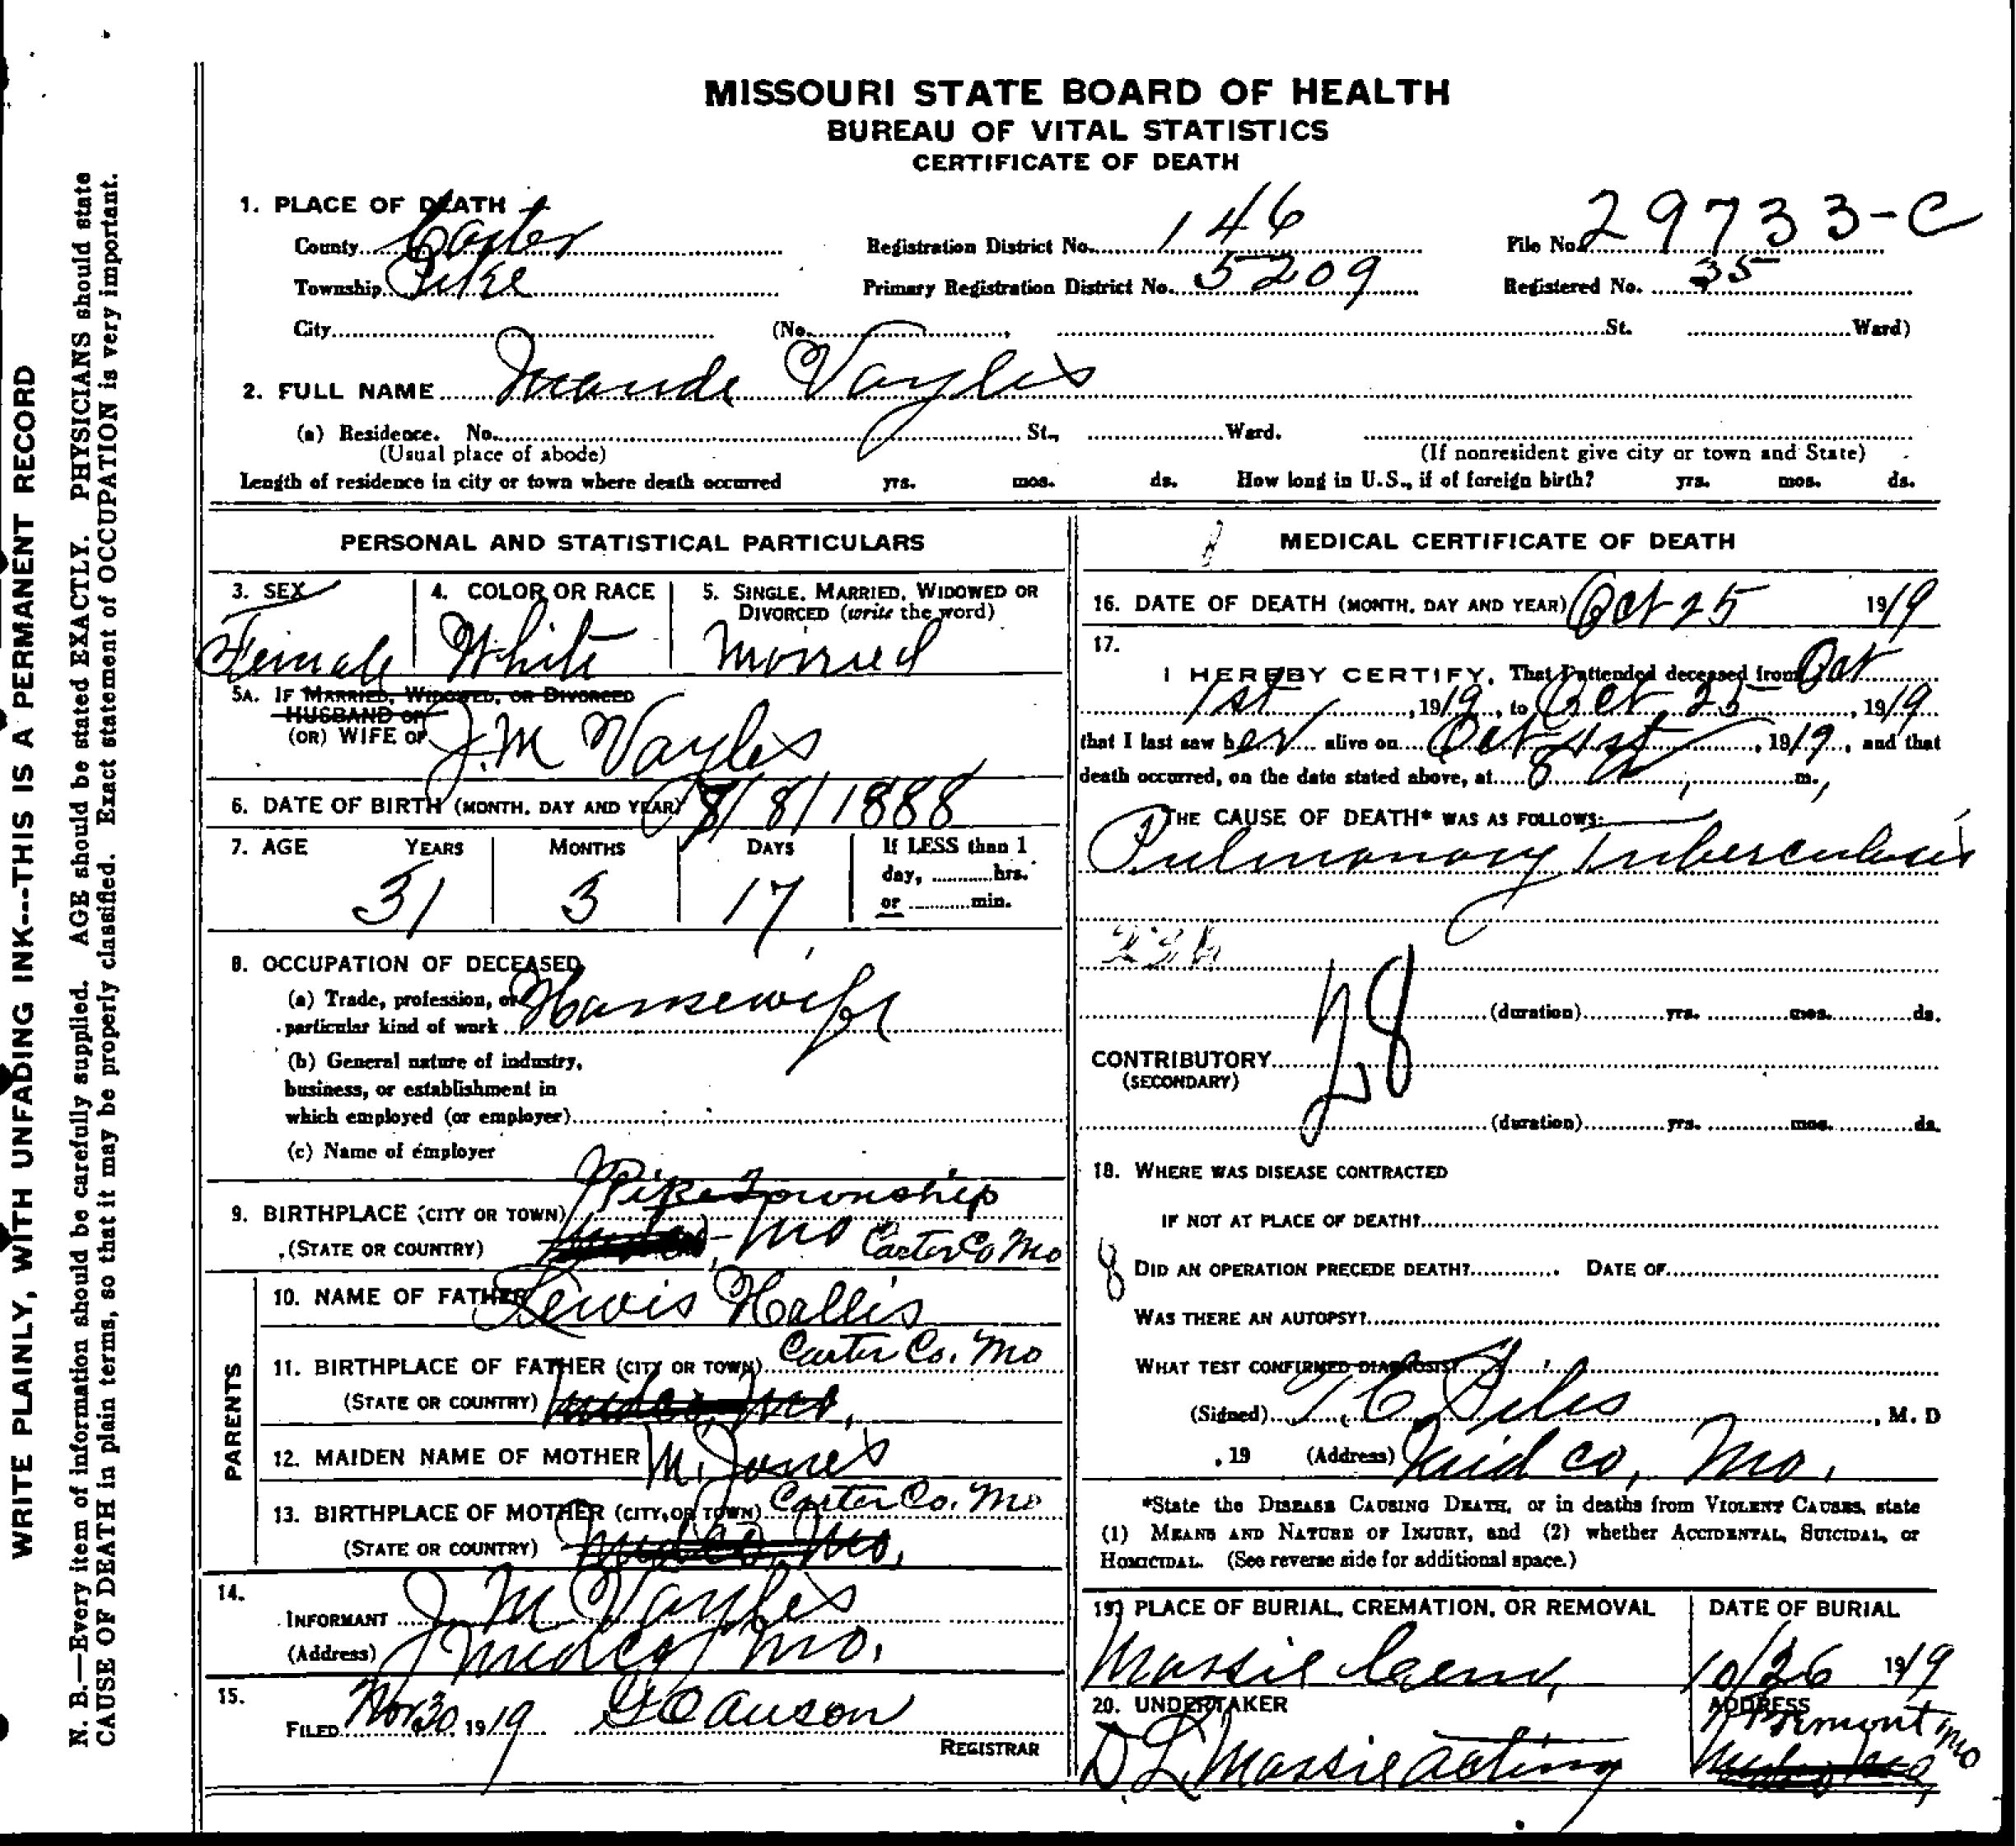 MISSOURI STATE BOARD OF HEALTH
BUREAU OF VITAL STATISTICS
CERTIFICATE OF DEATH
WRITE PLAINLY, WITH UNFADING INK---THIS IS A PERMANENT RECORD
N. B.—Every item of information should be carefully supplied. AGE should be stated EXACTLY. PHYSICIANS should state
CAUSE OF DEATH in plain terms, so that it may be properly classified. Exact statement of OCCUPATION is very important.
1. PLACE OF DEATH
County Carter Registration District No. 146 File No. 29733-C
Township Pike Primary Registration District No. 5209 Registered No. 35
City (No. , St. Ward)
2. FULL NAME Maude Vayles
(a) Residence. No. St., Ward.
(Usual place of abode) (If nonresident give city or town and State)
Length of residence in city or town where death occurred yrs. mos. ds. How long in U.S., if of foreign birth? yrs. mos. ds.
PERSONAL AND STATISTICAL PARTICULARS
3. SEX 4. COLOR OR RACE 5. SINGLE, MARRIED, WIDOWED OR
DIVORCED (write the word)
Female White Married
5A. IF MARRIED, WIDOWED, OR DIVORCED
HUSBAND OF
(OR) WIFE OF J.M Vayles
6. DATE OF BIRTH (MONTH, DAY AND YEAR) 8/8/1888
7. AGE YEARS MONTHS DAYS If LESS than 1
day, hrs.
31 3 17 or min.
8. OCCUPATION OF DECEASED
(a) Trade, profession, or
particular kind of work Housewife
(b) General nature of industry,
business, or establishment in
which employed (or employer)
(c) Name of employer
9. BIRTHPLACE (CITY OR TOWN) Pike Township
(STATE OR COUNTRY) Mo Carter Co Mo
PARENTS
10. NAME OF FATHER Lewis Hallis
11. BIRTHPLACE OF FATHER (CITY OR TOWN) Carter Co. Mo
(STATE OR COUNTRY)
12. MAIDEN NAME OF MOTHER M. Jones
13. BIRTHPLACE OF MOTHER (CITY OR TOWN) Carter Co. Mo
(STATE OR COUNTRY)
14.
INFORMANT J M Vayles
(Address) Midco, Mo.
15.
FILED Nov 30, 1919
REGISTRAR
MEDICAL CERTIFICATE OF DEATH
16. DATE OF DEATH (MONTH, DAY AND YEAR) Oct 25 1919
17.
I HEREBY CERTIFY, That I attended deceased from Oct
1st, 1919, to Oct 25, 1919
that I last saw her alive on Oct 1st, 1919, and that
death occurred, on the date stated above, at 8 m.
THE CAUSE OF DEATH* WAS AS FOLLOWS:
Pulmonary Tuberculosis
28
(duration) yrs. mos. ds.
CONTRIBUTORY
(SECONDARY)
(duration) yrs. mos. ds.
18. WHERE WAS DISEASE CONTRACTED
IF NOT AT PLACE OF DEATH?
8
DID AN OPERATION PRECEDE DEATH? DATE OF
WAS THERE AN AUTOPSY?
WHAT TEST CONFIRMED DIAGNOSIS?
(Signed) , M. D
, 19 (Address) Mo.
*State the DISEASE CAUSING DEATH, or in deaths from VIOLENT CAUSES, state
(1) MEANS AND NATURE OF INJURY, and (2) whether ACCIDENTAL, SUICIDAL, or
HOMICIDAL. (See reverse side for additional space.)
19. PLACE OF BURIAL, CREMATION, OR REMOVAL DATE OF BURIAL
Massie Cem, 10/26 1919
20. UNDERTAKER ADDRESS
D L Massie acting Fremont Mo